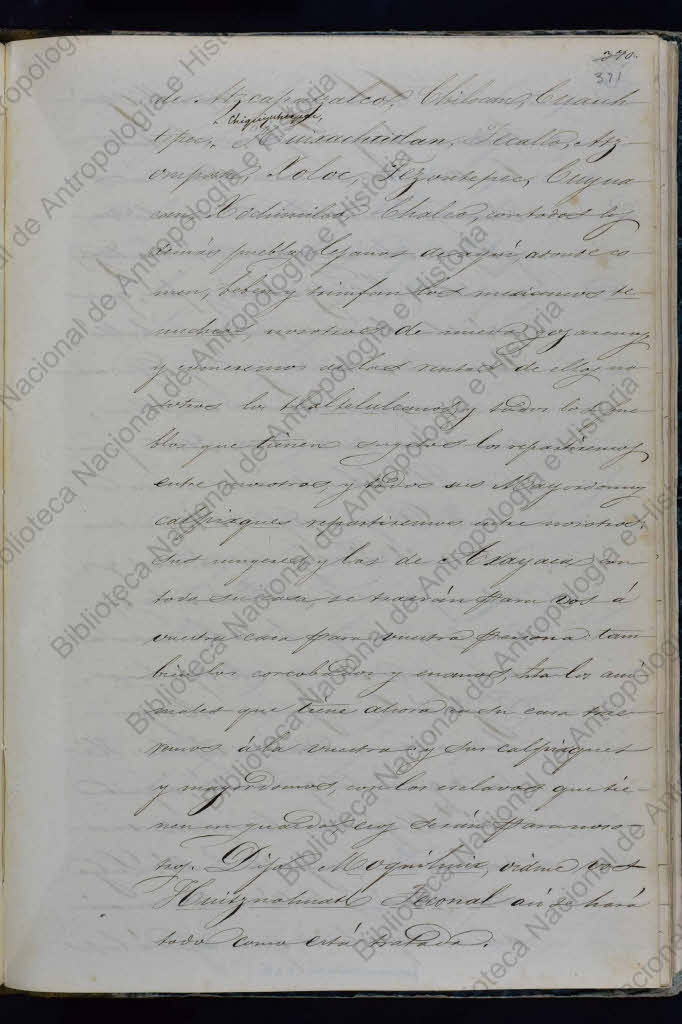 370.
371
de Atzcapuzalco, Chilocan, Cuauh
Chiquiuhtepec,
tipec, Huixachtitlan, Tecalco, Atz
ompan, Xoloc, Tezontepec, Cuyua
can, Xochimilco, Chalco, con todos los
demás pueblos lejanos de aquí, adonde co
men, beben y triunfan los mexicanos te
nuchcas, nosotros de nuevo gozaremos
y comeremos de las rentas de ellos no
sotros los tlaltelulcanos y todos los pue
blos que tienen sugetos los repartiremos
entre nosotros, y todos sus Mayordomos
calpixques repartiremos entre nosotros:
sus mugeres, y las de Axayaca con
toda su casa, se traerán para vos á
vuestra casa para vuestra persona: tam
bien los corcobados y enanos, hta los ani
males que tiene ahora en su casa trae
remos á la vuestra y sus calpixques
y mayordomos, con los esclavos que tie
nen en guarda, esos serán para noso
tros. Dijole Moquihuix, oidme vos
Huitznahuatl Teconal así se hará
todo como está tratado.
Biblioteca Nacional de Antropología e Historia